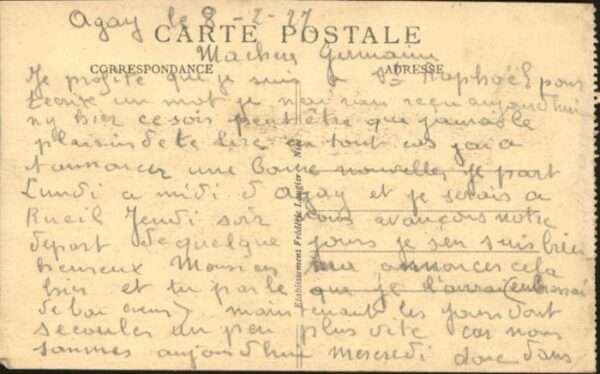 Agay le 8 - 2 - 27
CARTE POSTALE
Ma cher Germaine
CORRESPONDANCE
ADRESSE
Je profite que je suis a St Raphoël pour
t'ecrire un mot je n'ai rien reçu aujourd'hui
ny hier ce soir peut être que j'aurai le
plaisir de te lire en tout cas j'ai a
t'annoncer une bonne nouvelle, je part
Lundi a midi d'Agay et je serais a
Rueil Jeudi soir nous avançons notre
depart de quelque jours je s'en suis bien
heureux Monsieur ma annoncer cela
hier et tu parle que je l'aurai embrassai
de bon cœur) maintenant les jours vont
s'ecouler un peu plus vite car nous
sommes aujourd'hui mercredi donc dans
Etablissement Frédéric Laugier Nice